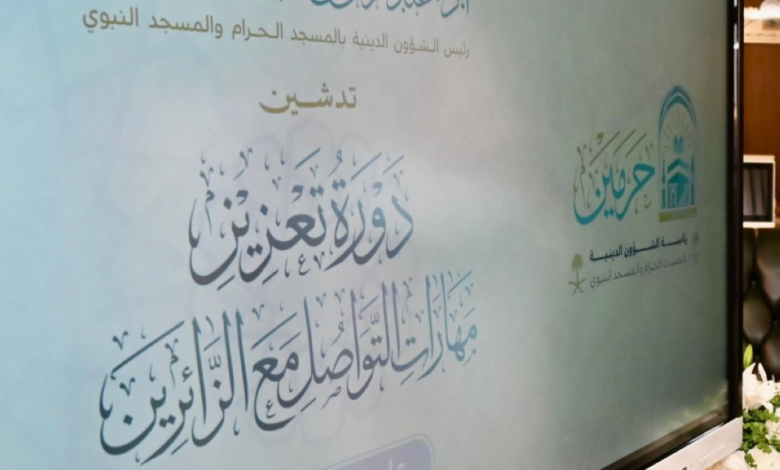 رئيس الشؤون الدينية بالمسجد الحرام والمسجد النبوي
تدشين
دَوْرَةُ تَعْزِيزِ
مَهَارَاتِ التَّوَاصُلِ مَعَ الزَّائِرِينَ
حَرَمَيْن
رئاسة الشؤون الدينية
بالمسجد الحرام والمسجد النبوي